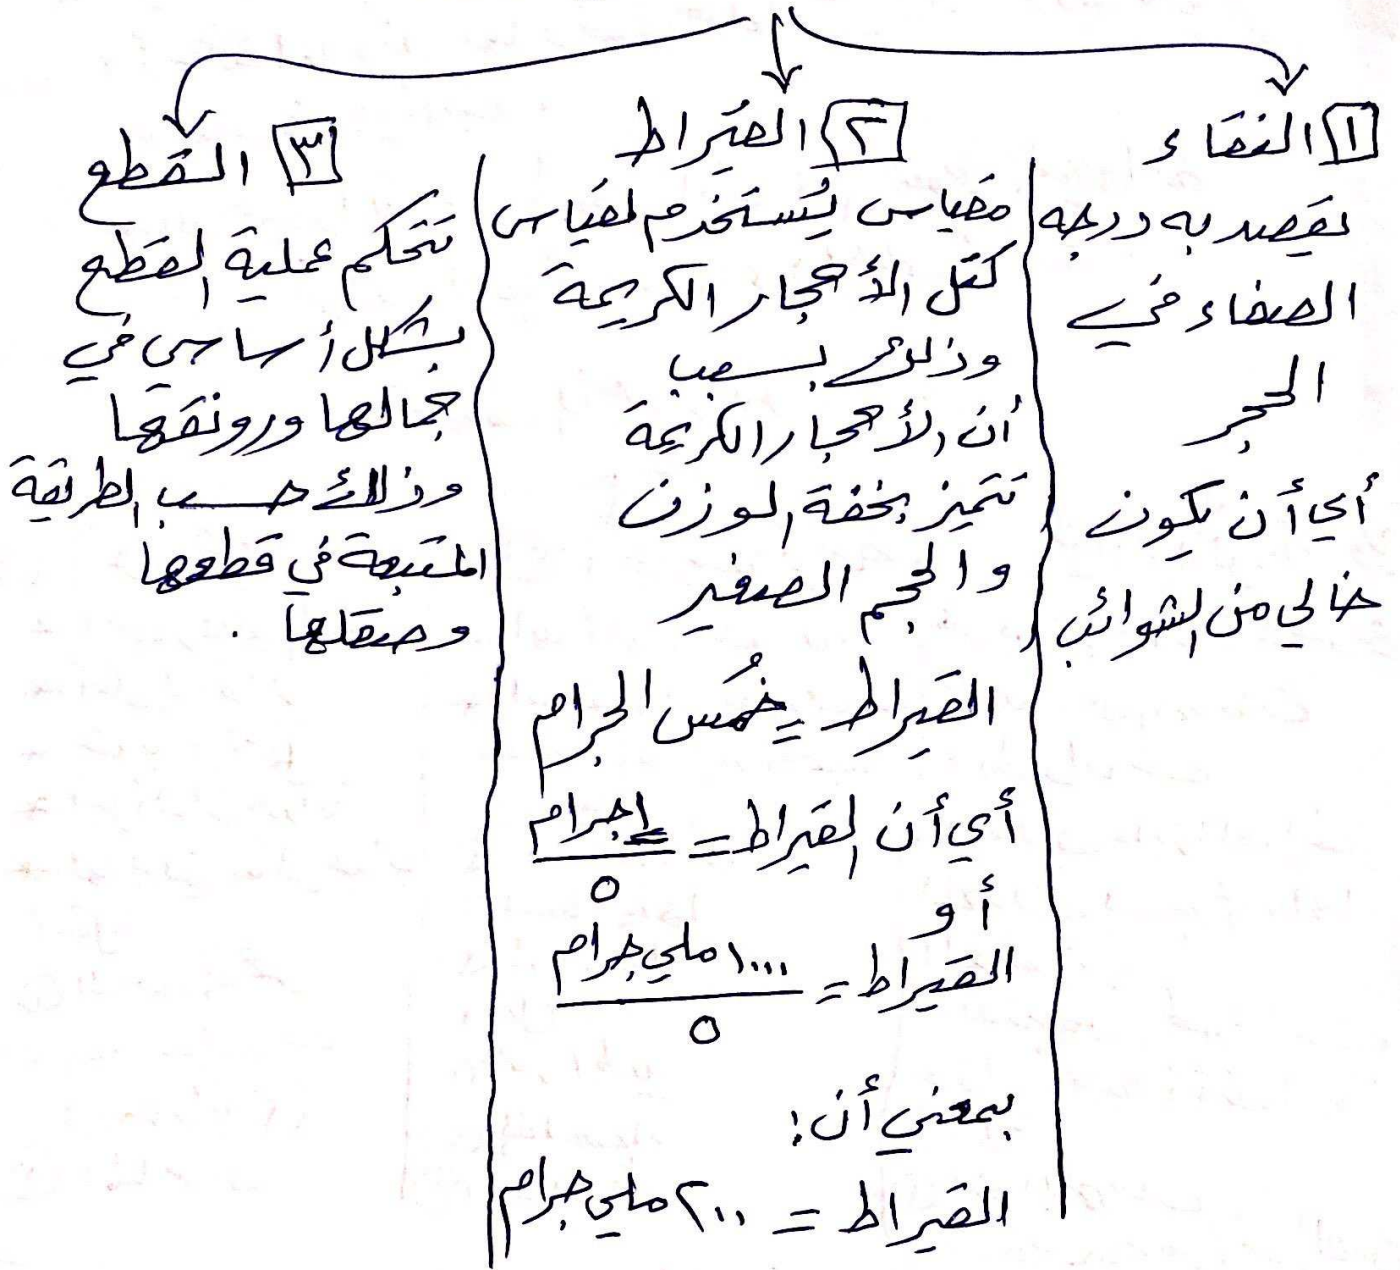 ١ النقاء
يقصد به درجه
الصفاء في
الحجر
أي أن يكون
خالي من الشوائب
٢ القيراط
مقياس يُستخدم لقياس
كتل الأحجار الكريمة
وذلك بسبب
أن الأحجار الكريمة
تتميز بخفة الوزن
والحجم الصغير
القيراط = خُمس الجرام
أي أن القيراط = ١ جرام / ٥
أو
القيراط = ١٠٠٠ ملي جرام / ٥
بمعني أن:
القيراط = ٢٠٠ ملي جرام
٣ القطع
تتحكم عملية القطع
بشكل أساسي في
جمالها ورونقها
وذلك حسب الطريقة
المتبعة في قطعها
وصقلها.